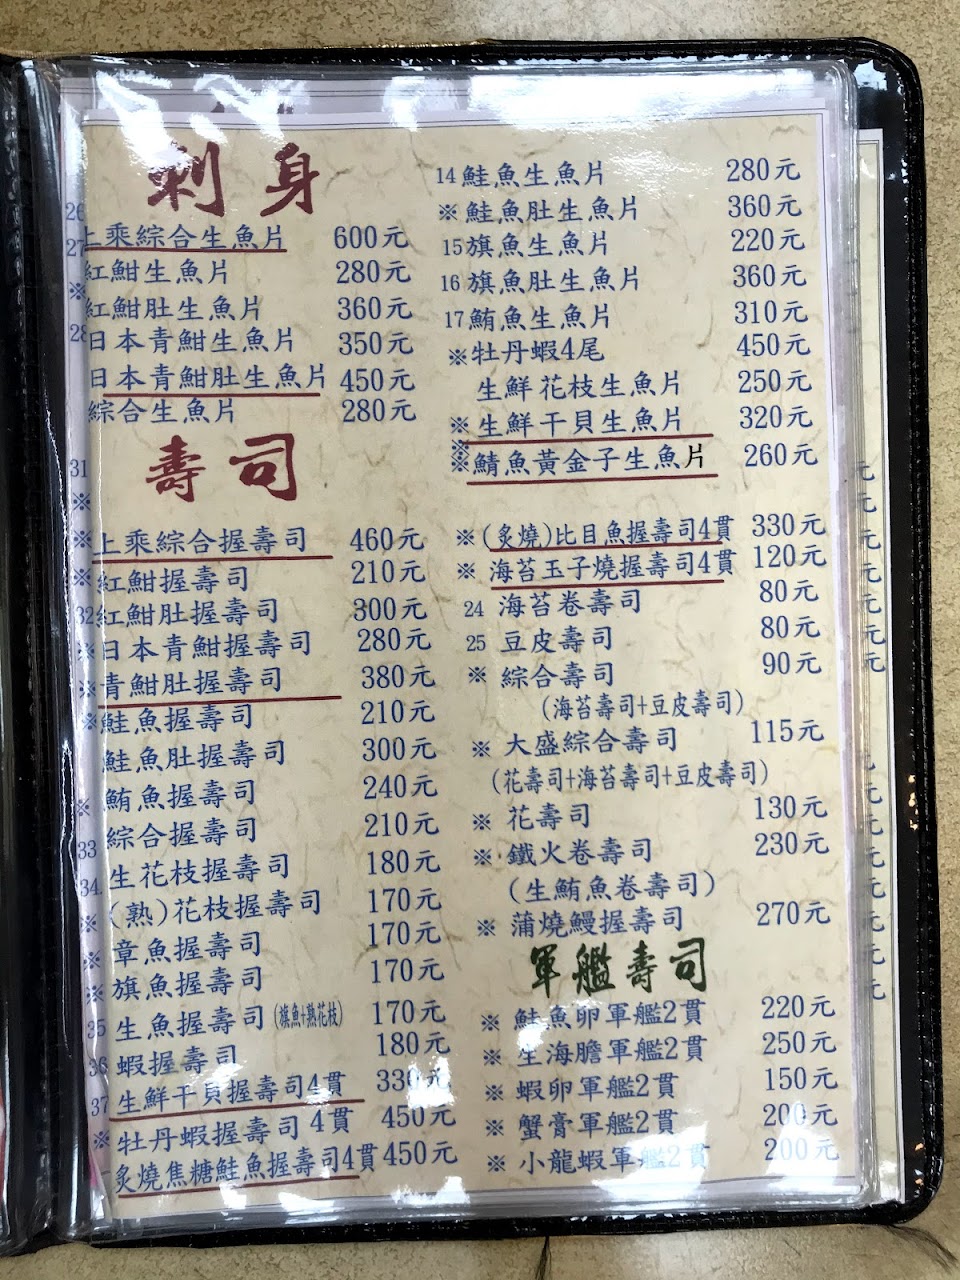 刺身
上乘綜合生魚片 600元
紅魽生魚片 280元
紅魽肚生魚片 360元
日本青魽生魚片 350元
日本青魽肚生魚片 450元
綜合生魚片 280元
14 鮭魚生魚片 280元
※ 鮭魚肚生魚片 360元
15 旗魚生魚片 220元
16 旗魚肚生魚片 360元
17 鮪魚生魚片 310元
※ 牡丹蝦4尾 450元
生鮮花枝生魚片 250元
※ 生鮮干貝生魚片 320元
※
※ 鯖魚黃金子生魚片 260元
壽司
上乘綜合握壽司 460元
紅魽握壽司 210元
紅魽肚握壽司 300元
日本青魽握壽司 280元
青魽肚握壽司 380元
鮭魚握壽司 210元
鮭魚肚握壽司 300元
鮪魚握壽司 240元
綜合握壽司 210元
生花枝握壽司 180元
(熟)花枝握壽司 170元
章魚握壽司 170元
旗魚握壽司 170元
生魚握壽司(旗魚+熟花枝) 170元
蝦握壽司 180元
生鮮干貝握壽司4貫 330元
牡丹蝦握壽司 4貫 450元
炙燒焦糖鮭魚握壽司4貫 450元
※ (炙燒)比目魚握壽司4貫 330元
※ 海苔玉子燒握壽司4貫 120元
24 海苔卷壽司 80元
25 豆皮壽司 80元
※ 綜合壽司 90元
(海苔壽司+豆皮壽司)
※ 大盛綜合壽司 115元
(花壽司+海苔壽司+豆皮壽司)
※ 花壽司 130元
※ 鐵火卷壽司 230元
(生鮪魚卷壽司)
※ 蒲燒鰻握壽司 270元
軍艦壽司
※ 鮭魚卵軍艦2貫 220元
※ 生海膽軍艦2貫 250元
※ 蝦卵軍艦2貫 150元
※ 蟹膏軍艦2貫 200元
※ 小龍蝦軍艦2貫 200元
26
27
※
28
31
※
※
※
32
※
※
※
※
33
34
※
※
※
35
36
37
※